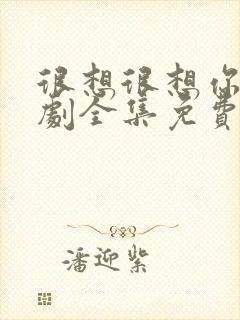 很想很想你
劇全集免費
潘迎紫